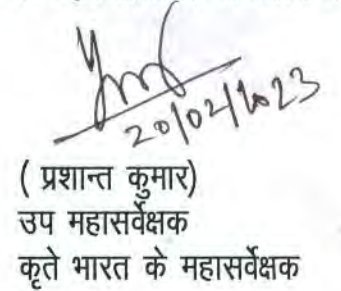 20/02/2023
( प्रशान्त कुमार)
उप महासर्वेक्षक
कृते भारत के महासर्वेक्षक